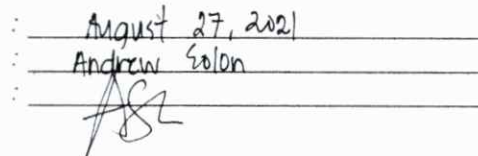 : August 27, 2021
: Andrew Solon
: